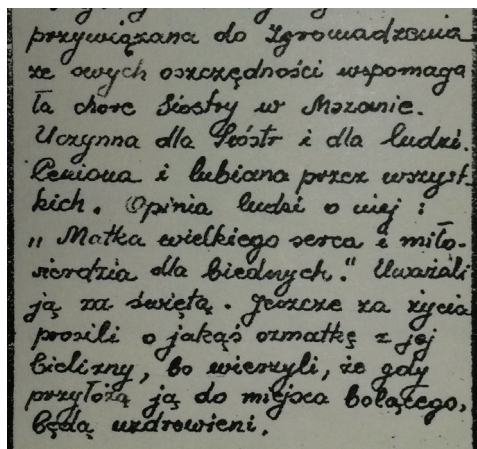 przywiązana do Zgromadzenia
ze swych oszczędności wspomaga
ła chore Siostry w Mszanie.
Uczynna dla Sióstr i dla ludzi.
Ceniona i lubiana przez wszyst-
kich. Opinia ludzi o niej :
„ Matka wielkiego serca i miło-
sierdzia dla biednych." Uważali
ją za świętą. Jeszcze za życia
prosili o jakąś szmatkę z jej
bielizny, bo wierzyli, że gdy
przyłożą ją do miejsca bolącego,
będą uzdrowieni.